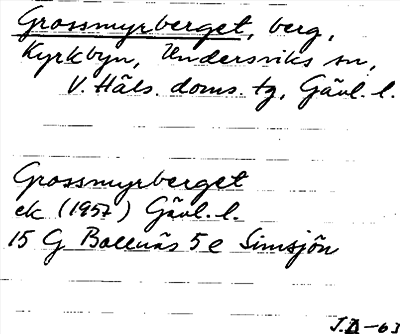 Grossmyrberget, berg,
Kyrkbyn, Undersviks sn,
V. Häls. doms. tg, Gävl. l.
Grossmyrberget
ek (1957) Gävl. l.
15 G Bollnäs 5 e Simsjön
J.D-63